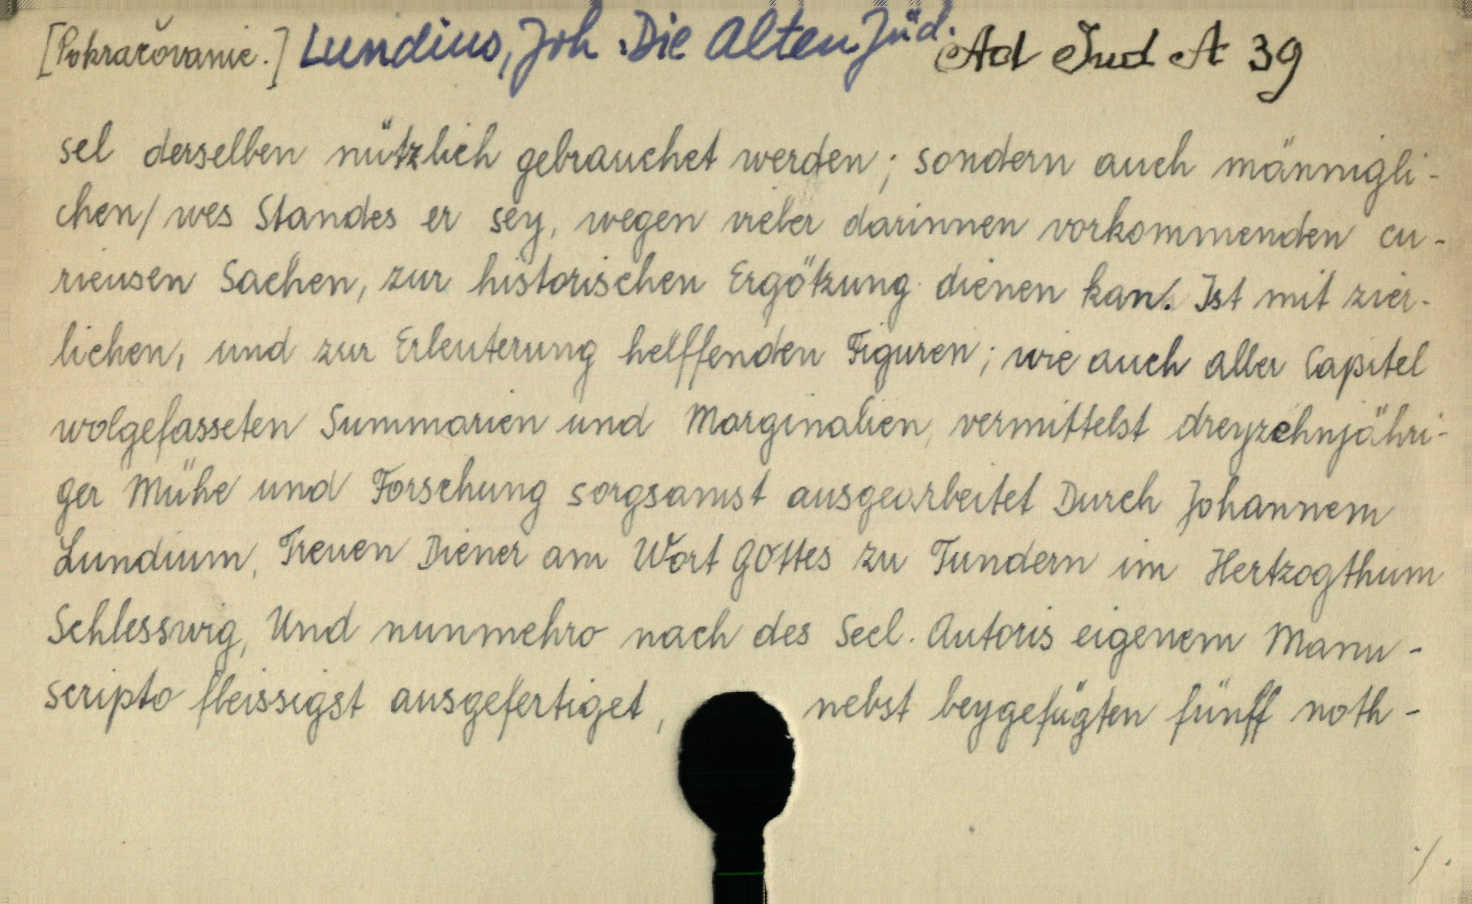 [Pokračovanie.] Lundius, Joh. Die Alten Jüd. Ad Jud A 39
sel derselben nützlich gebrauchet werden; sondern auch männigli-
chen/ wes Standes er sey, wegen vieler darinnen vorkommenden cu-
rieusen Sachen, zur historischen Ergötzung dienen kan. Ist mit zier-
lichen, und zur Erleuterung helffenden Figuren; wie auch aller Capitel
wolgefasseten Summarien und Marginalien, vermittelst dreyzehnjähri-
ger Mühe und Forschung sorgsamst ausgearbeitet Durch Johannem
Lundium, Treuen Diener am Wort Gottes zu Tundern im Hertzogthum
Schlesswig, Und nunmehro nach des Seel. Autoris eigenem Manu-
scripto fleissigst ausgefertiget, nebst beygefügten fünff noth-
./.